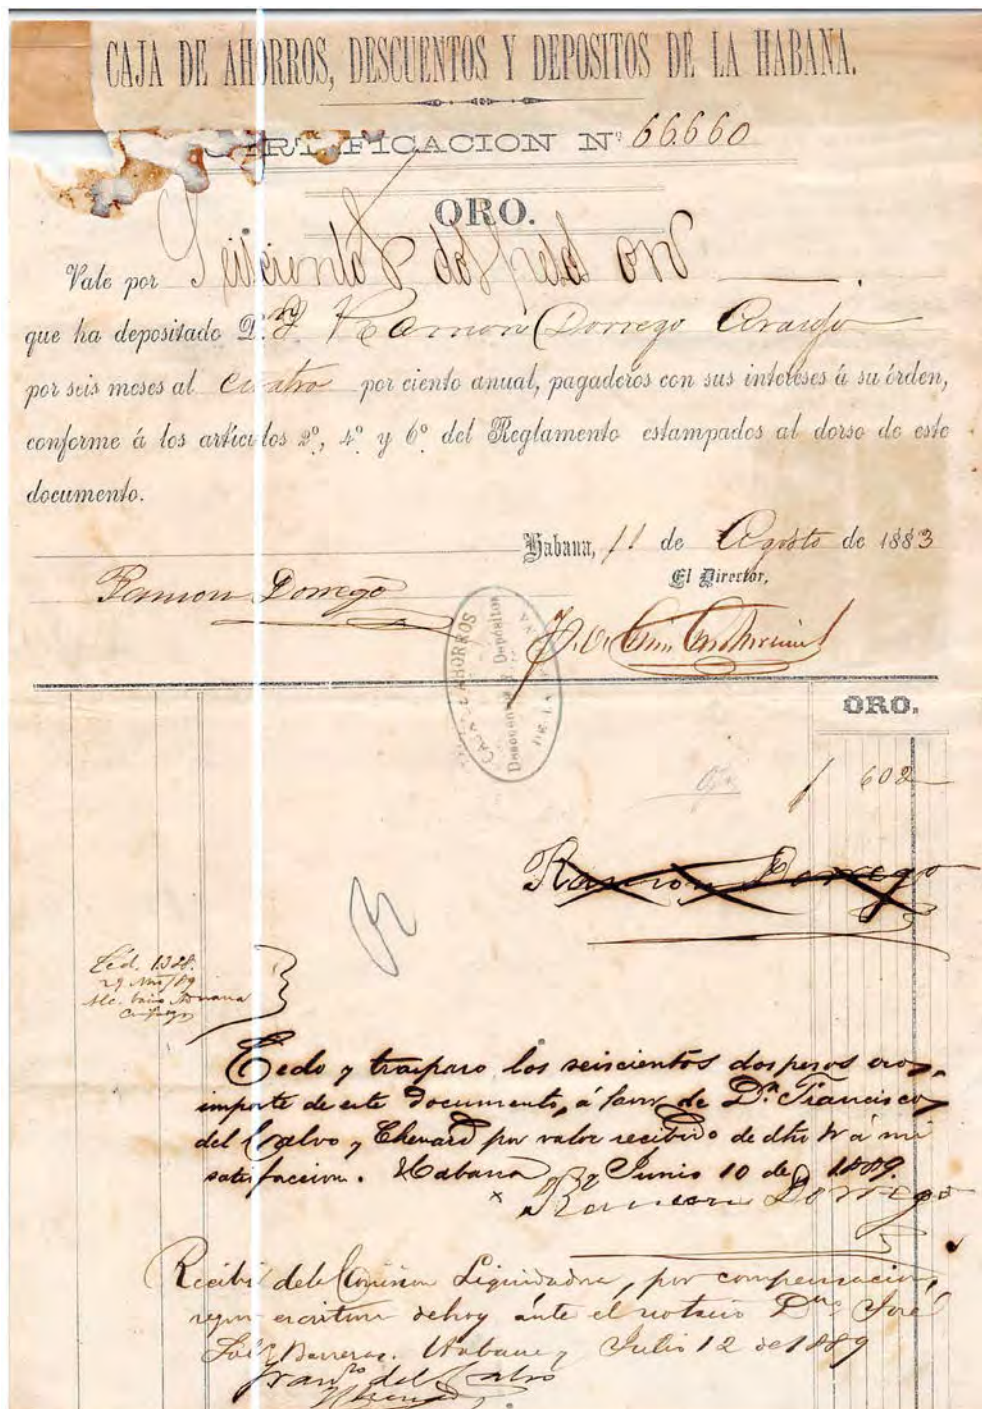 CAJA DE AHORROS, DESCUENTOS Y DEPOSITOS DE LA HABANA.
CERTIFICACION Nº 66.660
ORO.
Vale por Seiscientos dos pesos oro
que ha depositado D. Ramon Dorrego Araujo
por seis meses al cuatro por ciento anual, pagaderos con sus intereses á su órden,
conforme á los artículos 2º, 4º y 6º del Reglamento estampados al dorso de este
documento.
Habana, 11 de Agosto de 1883
El Director,
Ramon Dorrego
CAJA DE AHORROS
Descuentos y Depósitos
DE LA HABANA
ORO.
602
Ramon Dorrego
Céd. 1328.
29 /89
Cedo y traspaso los seiscientos dos pesos oro
importe de este Documento, á favor de Dn. Francisco
del Calvo y Chenard por valor recibido de dho Sr á mi
satisfaccion. Habana y Junio 10 de 1889.
Ramon Dorrego
Recibí de la Comision Liquidadora, por compensacion,
segun escritura de hoy ánte el notario Dn. José
Barreras. Habana y Julio 12 de 1889
Franco del Calvo